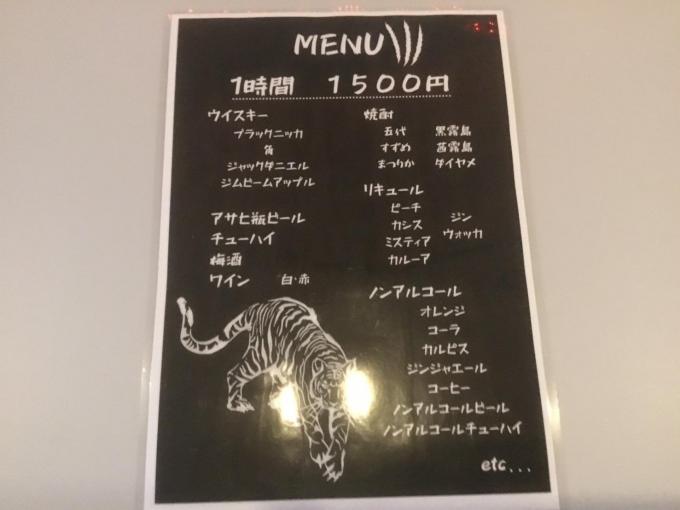 MENU
1時間 1500円
ウイスキー
ブラックニッカ
角
ジャックダニエル
ジムビームアップル
アサヒ瓶ビール
チューハイ
梅酒
ワイン 白・赤
焼酎
五代 黒霧島
すずめ 茜霧島
まつりか ダイヤメ
リキュール
ピーチ
カシス
ミスティア
カルーア
ジン
ウォッカ
ノンアルコール
オレンジ
コーラ
カルピス
ジンジャエール
コーヒー
ノンアルコールビール
ノンアルコールチューハイ
etc...